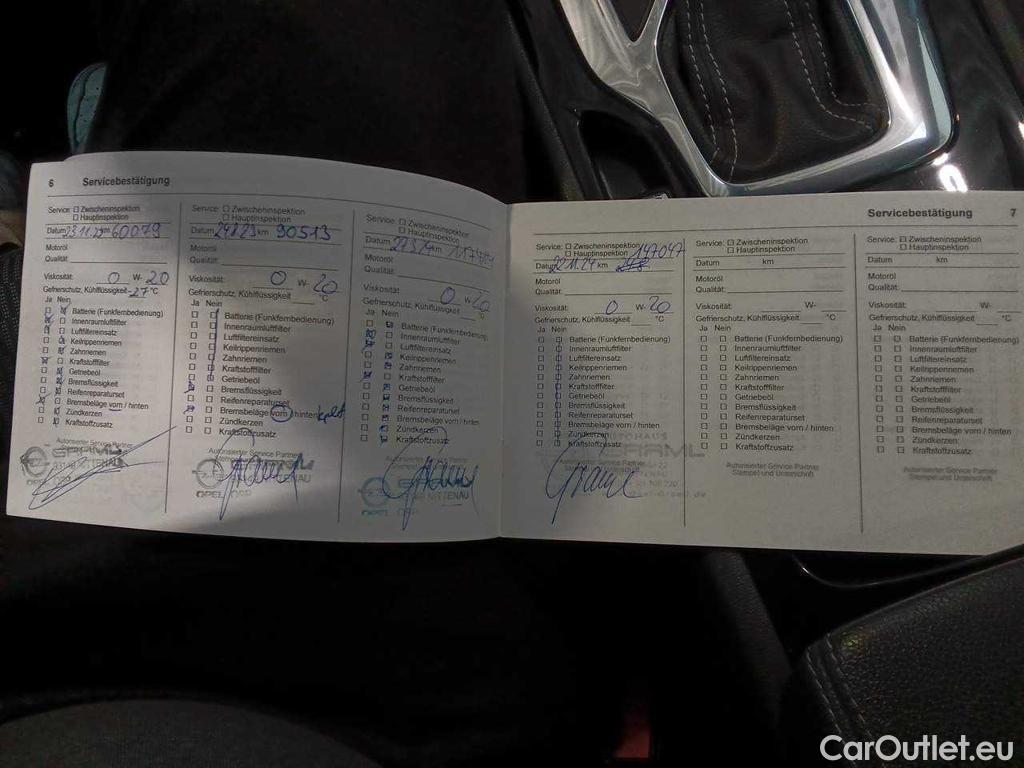 6 Servicebestätigung
Service: ☐ Zwischeninspektion
☐ Hauptinspektion
Datum 23.11.22 km 60079
Motoröl
Qualität
Viskosität: 0 W- 20
Gefrierschutz, Kühlflüssigkeit -27 °C
Ja Nein
Batterie (Funkfernbedienung)
Innenraumluftfilter
Luftfiltereinsatz
Keilrippenriemen
Zahnriemen
Kraftstofffilter
Getriebeöl
Bremsflüssigkeit
Reifenreparaturset
Bremsbeläge vorn / hinten
Zündkerzen
Kraftstoffzusatz
Autorisierter Service Partner
93149 NITTENAU
Service: ☐ Zwischeninspektion
☐ Hauptinspektion
Datum km 90513
Motoröl
Qualität:
Viskosität: 0 W- 20
Gefrierschutz, Kühlflüssigkeit °C
Ja Nein
Batterie (Funkfernbedienung)
Innenraumluftfilter
Luftfiltereinsatz
Keilrippenriemen
Zahnriemen
Kraftstofffilter
Getriebeöl
Bremsflüssigkeit
Reifenreparaturset
Bremsbeläge vorn / hinten
Zündkerzen
Kraftstoffzusatz
OPEL
Service: ☐ Zwischeninspektion
☐ Hauptinspektion
Datum km
Motoröl
Qualität:
Viskosität: 0 W- 20
Gefrierschutz, Kühlflüssigkeit °C
Ja Nein
Batterie (Funkfernbedienung)
Innenraumluftfilter
Luftfiltereinsatz
Keilrippenriemen
Zahnriemen
Kraftstofffilter
Getriebeöl
Bremsflüssigkeit
Reifenreparaturset
Bremsbeläge vorn / hinten
Zündkerzen
Kraftstoffzusatz
NITTENAU
OPEL
Servicebestätigung 7
Service: ☐ Zwischeninspektion
☐ Hauptinspektion
Datum 22.11.24 km 147047
Motoröl
Qualität:
Viskosität: 0 W- 20
Gefrierschutz, Kühlflüssigkeit °C
Ja Nein
Batterie (Funkfernbedienung)
Innenraumluftfilter
Luftfiltereinsatz
Keilrippenriemen
Zahnriemen
Kraftstofffilter
Getriebeöl
Bremsflüssigkeit
Reifenreparaturset
Bremsbeläge vorn / hinten
Zündkerzen
Kraftstoffzusatz
Service: ☐ Zwischeninspektion
☐ Hauptinspektion
Datum km
Motoröl
Qualität:
Viskosität: W-
Gefrierschutz, Kühlflüssigkeit °C
Ja Nein
Batterie (Funkfernbedienung)
Innenraumluftfilter
Luftfiltereinsatz
Keilrippenriemen
Zahnriemen
Kraftstofffilter
Getriebeöl
Bremsflüssigkeit
Reifenreparaturset
Bremsbeläge vorn / hinten
Zündkerzen
Kraftstoffzusatz
Autorisierter Service Partner
Stempel und Unterschrift
Service: ☐ Zwischeninspektion
☐ Hauptinspektion
Datum km
Motoröl
Qualität:
Viskosität: W-
Gefrierschutz, Kühlflüssigkeit °C
Ja Nein
Batterie (Funkfernbedienung)
Innenraumluftfilter
Luftfiltereinsatz
Keilrippenriemen
Zahnriemen
Kraftstofffilter
Getriebeöl
Bremsflüssigkeit
Reifenreparaturset
Bremsbeläge vorn / hinten
Zündkerzen
Kraftstoffzusatz
Autorisierter Service Partner
Stempel und Unterschrift
CarOutlet.eu